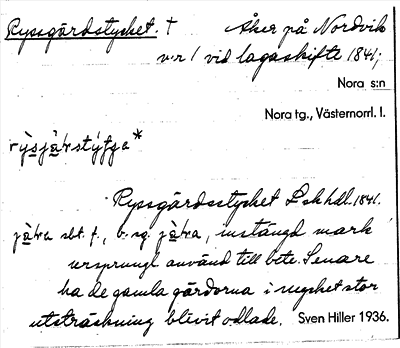 Ryssgärdstycket. † Åker på Nordvik
v:r 1 vid lagaskifte 1841;
Nora s:n
Nora tg., Västernorrl. l.
Ryssgärdsstycket Lskhdl. 1841.
sbt. f., b. sg. instängd mark
ursprungl. använd till bete. Senare
ha de gamla gärdorna i mycket stor
utsträckning blivit odlade. Sven Hiller 1936.